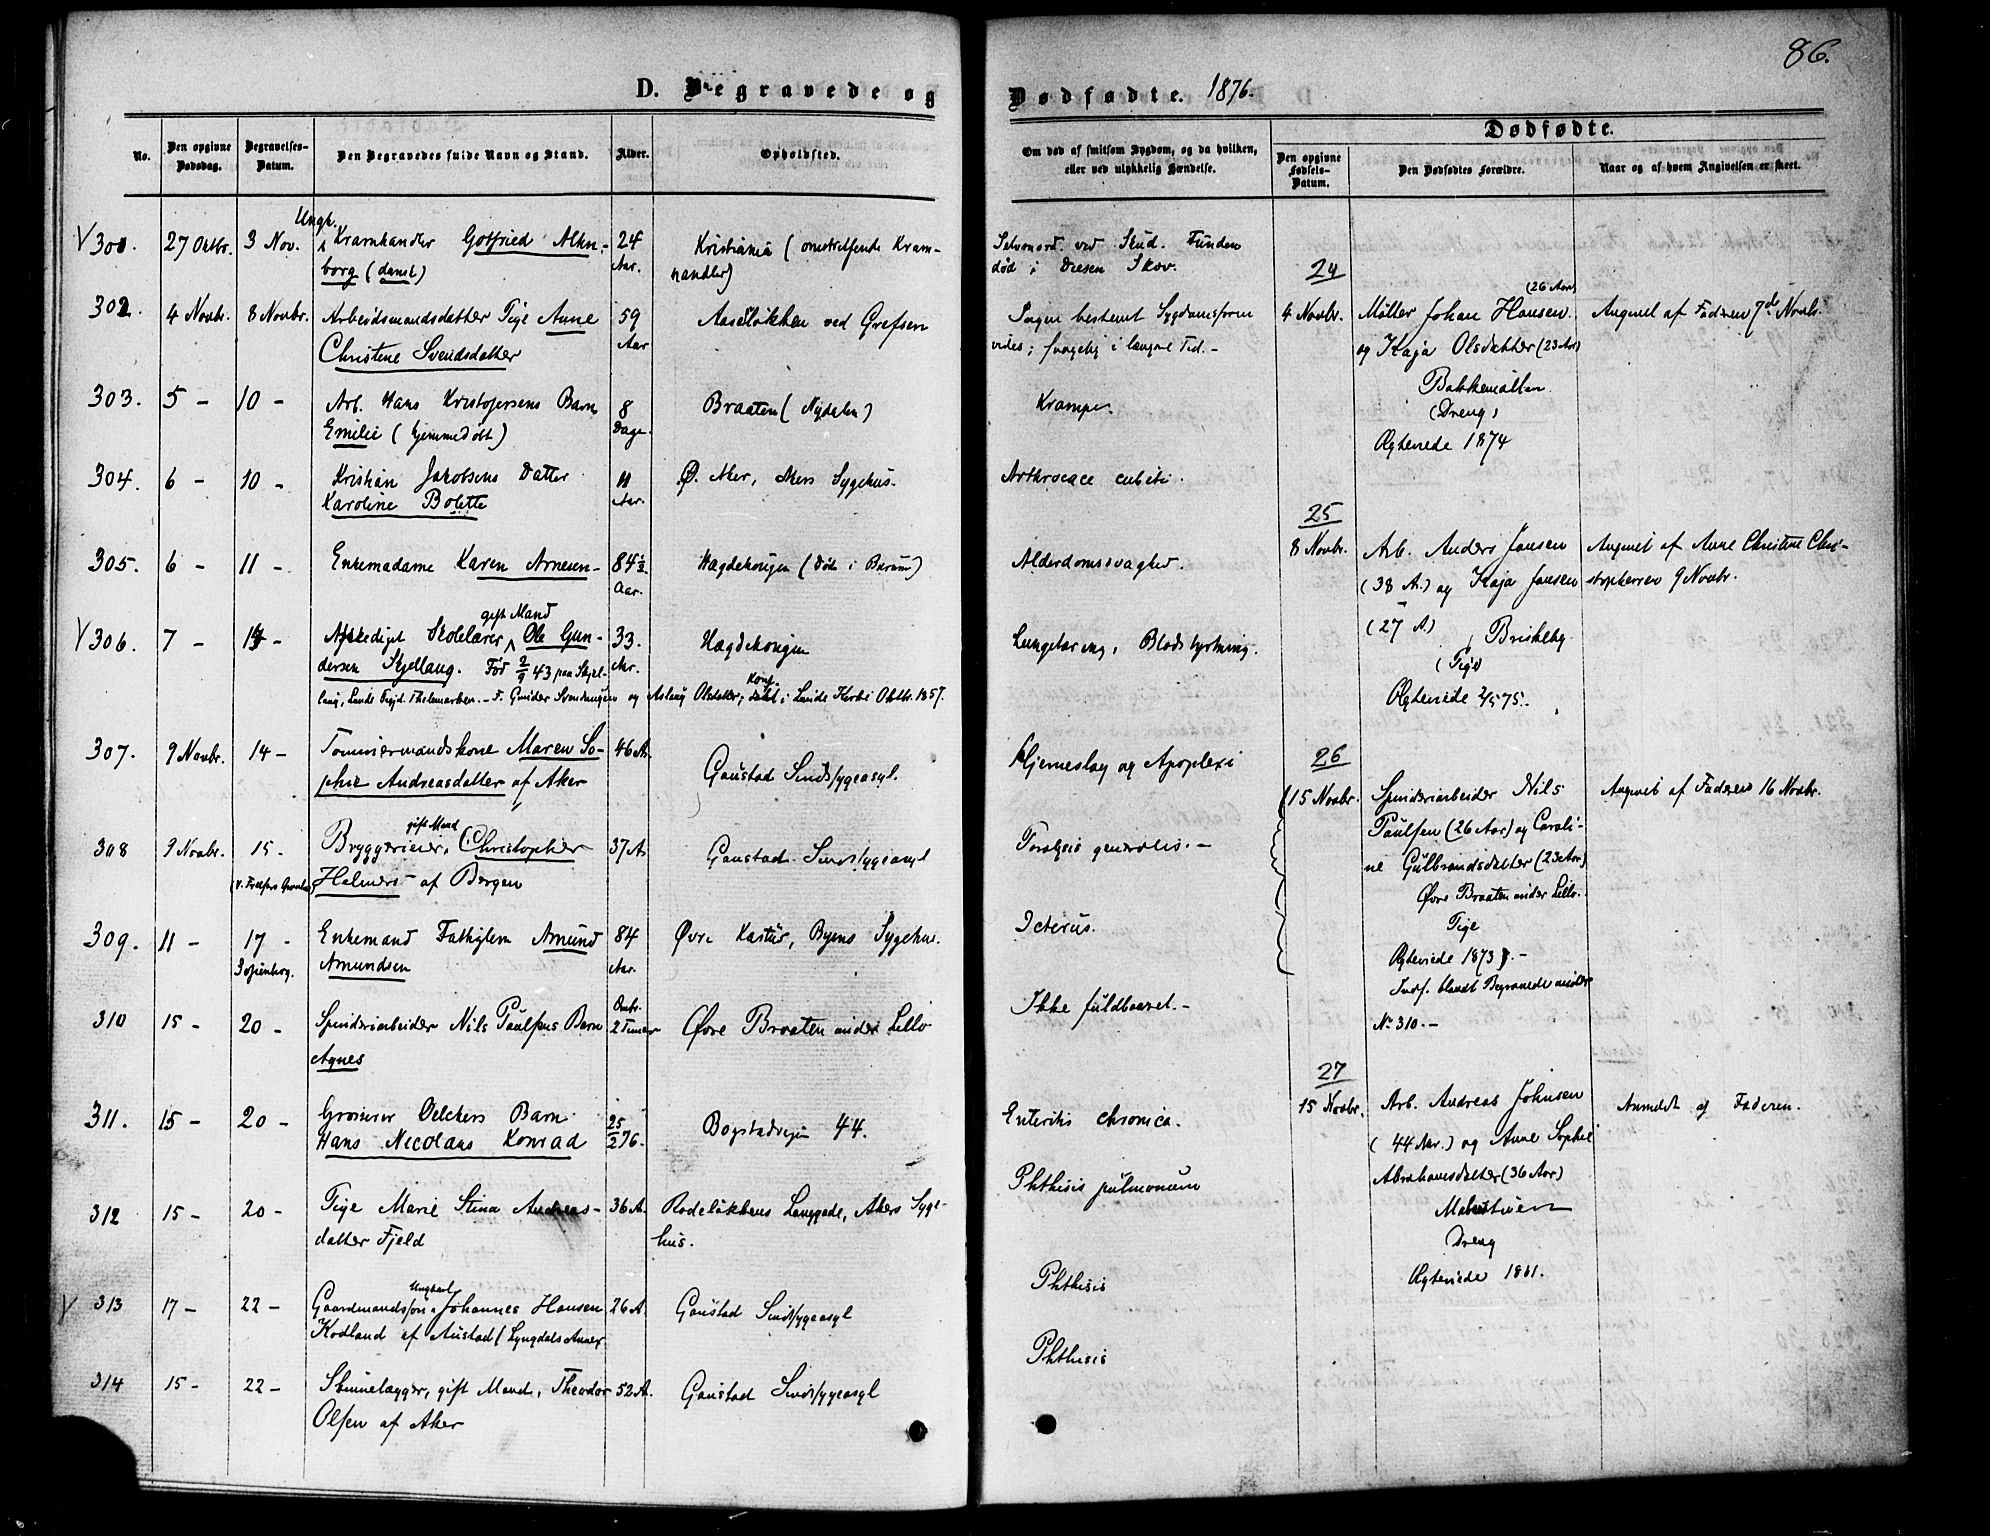 86.
D. Begravede og
Dødfødte. 1876.
No.
Den opgivne Dødsdag.
Begravelses-Datum.
Den Begravedes fulde Navn og Stand.
Alder.
Opholdsted.
Om død af smitsom Sygdom, og da hvilken, eller ved ulykkelig Hændelse.
Dødfødte.
Den opgivne Fødsels-Datum.
Den Dødfødtes Forældre.
Naar og af hvem Angivelsen er skeet.
301. 27 Oktbr. 3 Nov. Ungk. Kramhandler Gotfried Alten-
borg (dansk) 24 Aar. Kristiania (omstreifende Kram-
handler)
Selvmord ved Skud. Funden
død i Skov.
302. 4 Novbr. 8 Novbr. Arbeidsmandsdatter Pige Anne
Christine Svendsdatter 59 Aar Aaseløkken ved Grefsen
Ingen bestemt Sygdomsform
vides; svagelig i længere Tid. -
303. 5 - 10 - Arb. Hans Kristofersens Barn
Emilie (hjemmedøbt) 8 Dage. Braaten (Nydalen)
Krampe.
304. 6 - 10 - Kristian Jakobsens Datter
Karoline Bolette 11 Aar. Ø. Aker, Akers Sygehus.
Arthrocace cubiti.
305. 6 - 11 - Enkemadame Karen Arnesen 84½ Aar. Hægdehougen (død i Bærum)
Alderdomssvaghed.
306. 7 - 14 - Afskediget Skolelærer, gift Mand Ole Gun-
dersen Skjellaug. Født 2/9 43 paa Skjel-
laug, Lunde Prgjd. Thelemarken. - F. Gunder Svenungsen og Aslaug Olsdatter, Konf. i Lunde Kirke i Oktbr. 1857.
33. Aar. Hægdehougen
Lungetæring, Blodstyrtning.
307. 9 Novbr. 14 - Tømmermandskone Maren So-
phie Andreasdatter af Aker 46 A. Gaustad Sindssygeasyl.
Hjerneslag og Apoplexi
308 9 Novbr. 15 - Bryggerieier, gift Mand Christopher
Helmers af Bergen 37 A. Gaustad Sindssygeasyl
Paralysis generalis. -
309. 11 - 17 - Enkemand Fattiglem Amund
Amundsen 84 Aar. Øvre Kastur, Byens Sygehus.
Icterus.
310 15 - 20 - Spinderiarbeider Nils Paulsens Barn
Agnes Omtr. 2 Timer Øvre Braaten under Lillo
Ikke fuldbaaret. -
311. 15 - 20 - Grosserer Oelckers Barn
Hans Nicolaus Konrad 25/2 76. Bogstadveien 44.
Enteritis chronica.
312 15 - 20 - Pige Marie Stina Andreas-
datter Fjeld 36 A. Rodeløkkens Langgade, Akers Syge-
hus.
Phthisis pulmonum
313 17 - 22 - Gaardmandssøn Ungkarl Johannes Hansen
Kodland af Austad (Lyngdals Annex) 26 A. Gaustad Sindssygeasyl
Phthisis
314 15 - 22 - Stenlægger, gift Mand, Theodor
Olsen af Aker 52 A. Gaustad Sindssygeasyl
Phthisis
24
4 Novbr. Møller Johan Hansen (26 Aar)
og Kaja Olsdatter (23 Aar)
Bakkemøllen.
(Dreng)
Ægteviede 1874
Angivet af Faderen 7de Novbr.
25
8 Novbr. Arb. Anders Jansen
(38 A.) og Kaja Jansen
(27 A.)
Briskeby.
(Pige)
Ægteviede 2/5 75.
Angivet af Anne Christine Chri-
stophersen 9 Novbr.
26
15 Novbr. Spinderiarbeider Nils
Paulsen (26 Aar) og Caroli-
ne Gulbrandsdatter (23 Aar)
Øvre Braaten under Lillo.
Pige
Ægteviede 1873. -
Indf. blandt Begravede under
No 310. -
Angivet af Faderen 16 Novbr.
27
15 Novbr. Arb. Andreas Johnsen
(44 Aar.) og Anne Sophie
Abrahamsdatter (36 Aar)
Dreng
Ægteviede 1861.
Anmeldt af Faderen.